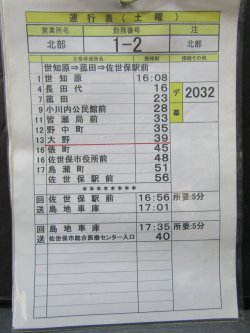 運行表(土曜)
営業所名 勤務番号 注
北部 1-2 北部
主要停留所名 発時刻 接続その他
世知原⇒菰田⇒佐世保駅前
1 世知原 16:08 デ 2032
4 長田代 16 幕
7 菰田 23
9 小川内公民館前 28
11 皆瀬局前 33
12 野中町 35
13 大野 39
16 俵町 45
16 佐世保市役所前 48
17 島瀬町 51
佐世保駅前 56
********
回 佐世保駅前 16:56 所要:5分
送 島地車庫 17:01
回 島地車庫 17:35 所要:5分
送 佐世保市総合医療センター入口 40